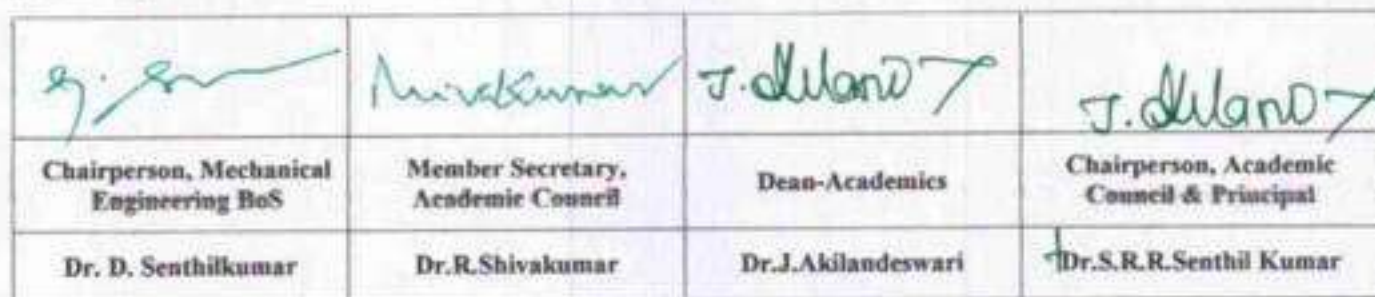 J. Akiland
J. Akiland
Chairperson, Mechanical
Engineering BoS
Member Secretary,
Academic Council
Dean-Academics
Chairperson, Academic
Council & Principal
Dr. D. Senthilkumar
Dr.R.Shivakumar
Dr.J.Akilandeswari
Dr.S.R.R.Senthil Kumar